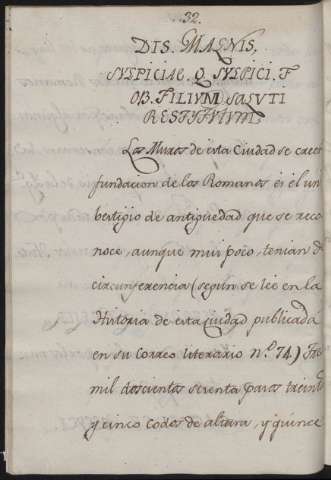 32.
DIS. MAGNIS.
SVLPICIAE. Q SVLPICI. F
OB. FILIVM SALVTI
RESTITVTUM
Los Muros de esta Ciudad se creen
fundacion de los Romanos es el un
bestigio de antiguedad que se reco
noce, aunque mui poco, tenian de
circunferencia (segun se lee en la
Historia de esta Ciudad publicada
en su Correo literario n.º 74)
mil doscientos setenta pasos treinta
y cinco codos de altura, y quince